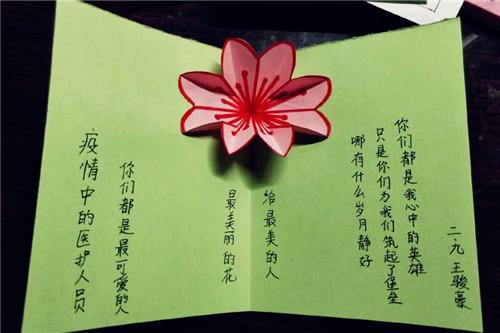 疫情中的医护人员
你们都是最可爱的人
最美丽的花
给最美的人
哪有什么岁月静好
只是你们为我们筑起了堡垒
你们都是我心中的英雄
二.九 王骏豪